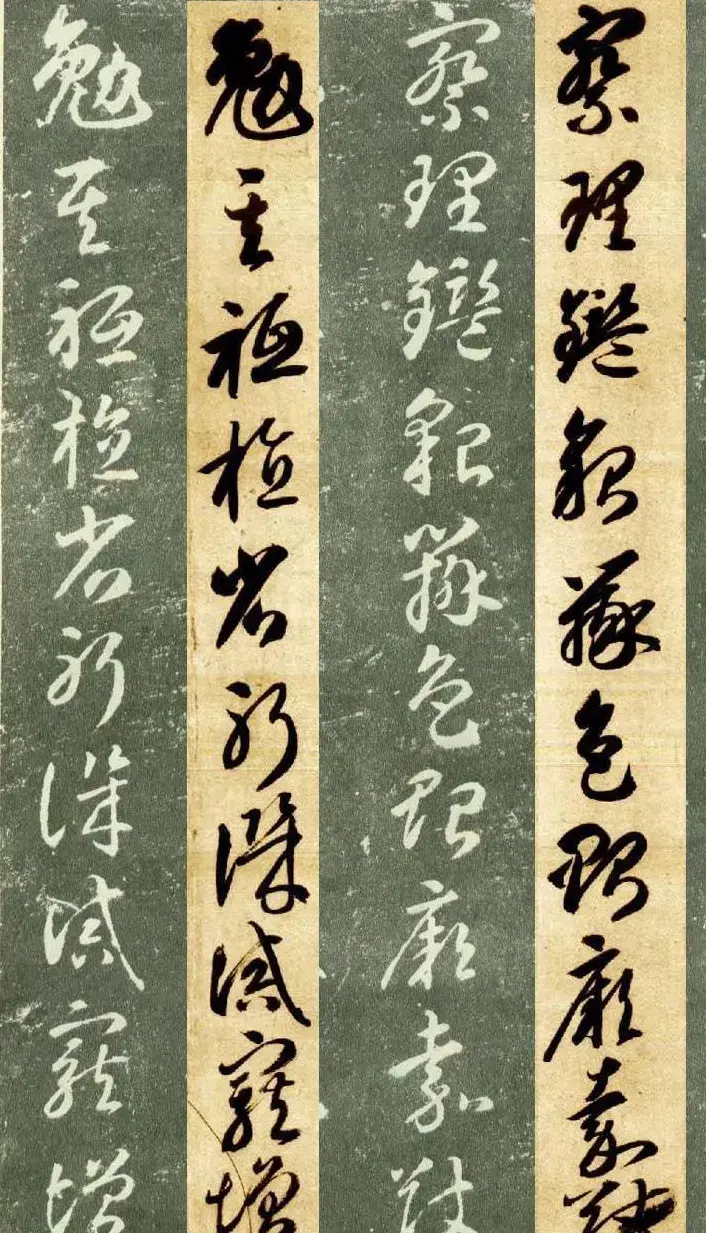 察理鑑貌辨色貽厥嘉猷
察理鑑貌辨色貽厥嘉猷
勉其祗植省躬譏誡寵增
勉其祗植省躬譏誡寵增